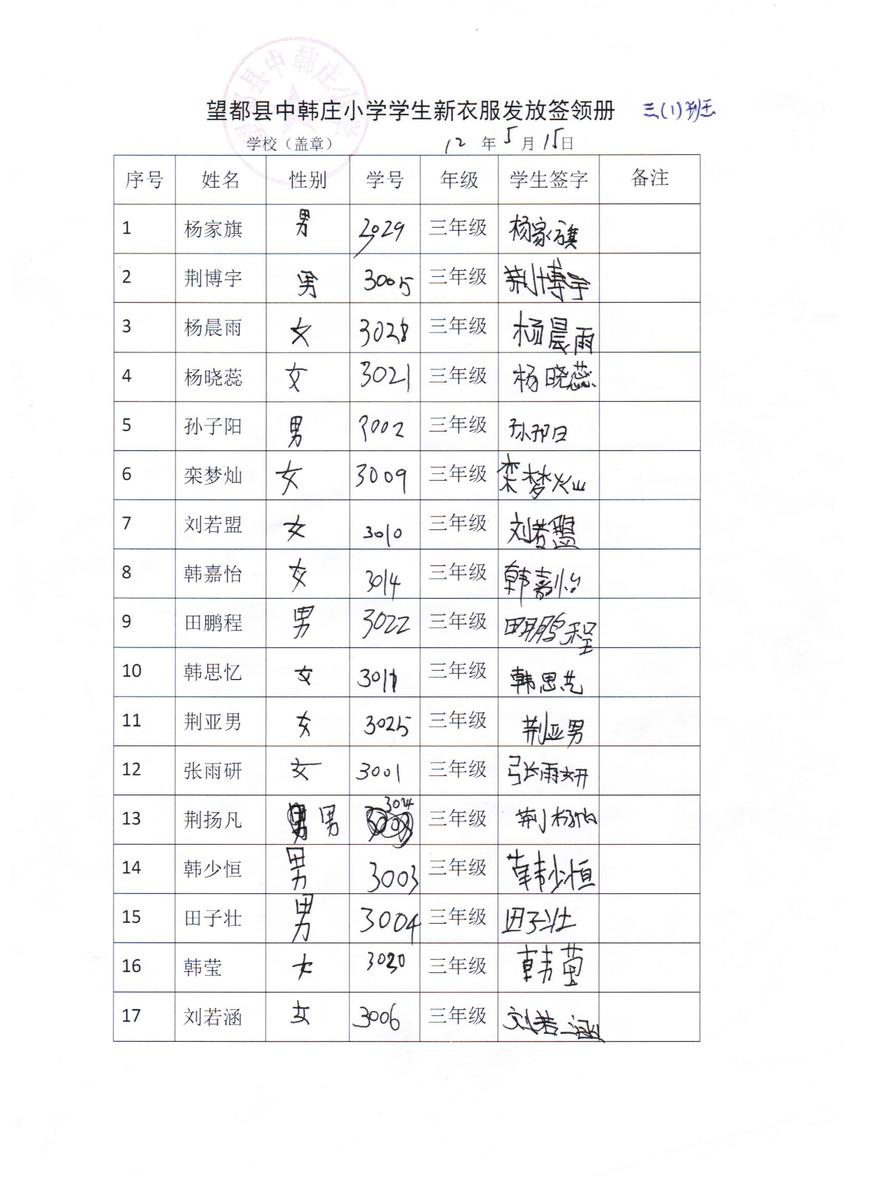 望都县中韩庄小学学生新衣服发放签领册 三(1)班
学校（盖章） 12 年 5 月 15日
序号 姓名 性别 学号 年级 学生签字 备注
1 杨家旗 男 3029 三年级 杨家旗
2 荆博宇 男 3005 三年级 荆博宇
3 杨晨雨 女 3028 三年级 杨晨雨
4 杨晓蕊 女 3021 三年级 杨晓蕊
5 孙子阳 男 3002 三年级
6 栾梦灿 女 3009 三年级 栾梦灿
7 刘若盟 女 3010 三年级 刘若盟
8 韩嘉怡 女 3014 三年级 韩嘉怡
9 田鹏程 男 3022 三年级 田鹏程
10 韩思忆 女 三年级 韩思
11 荆亚男 女 3025 三年级 荆亚男
12 张雨研 女 3001 三年级 张雨研
13 荆扬凡 男 3024 三年级 荆扬
14 韩少恒 男 3003 三年级 韩少恒
15 田子壮 男 3004 三年级 田子壮
16 韩莹 女 3020 三年级 韩莹
17 刘若涵 女 3006 三年级 刘若涵